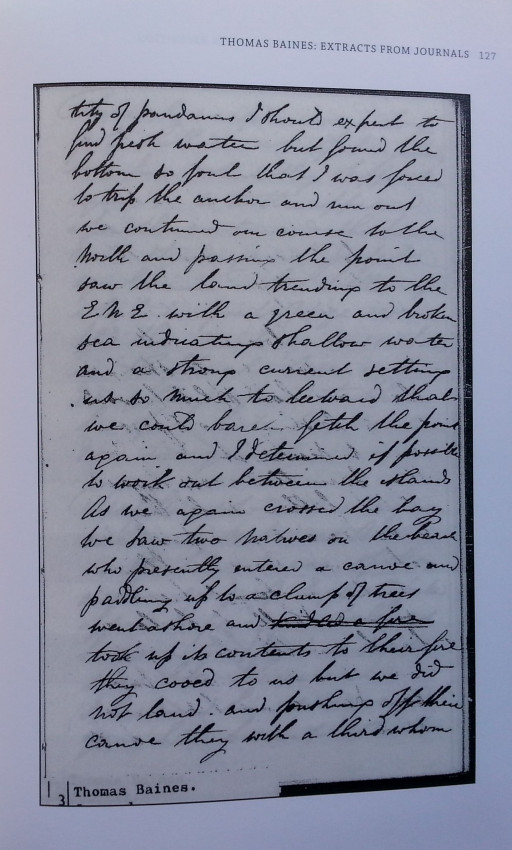 THOMAS BAINES: EXTRACTS FROM JOURNALS 127
tity of pandanus I should expect to
find fresh water but found the
bottom so foul that I was forced
to trip the anchor and run out
we continued our course to the
North and passing the point
saw the land trending to the
E N E with a green and broken
sea indicating shallow water
and a strong current setting
so much to leeward that
we could barely fetch the point
again and I determined if possible
to work out between the islands
As we again crossed the bay
we saw two natives on the beach
who presently entered a canoe and
paddling up to a clump of trees
went ashore and kindled a fire
took up its contents to their fire
they cooed to us but we did
not land and pushing off their
canoe they with a third whom
3 Thomas Baines.